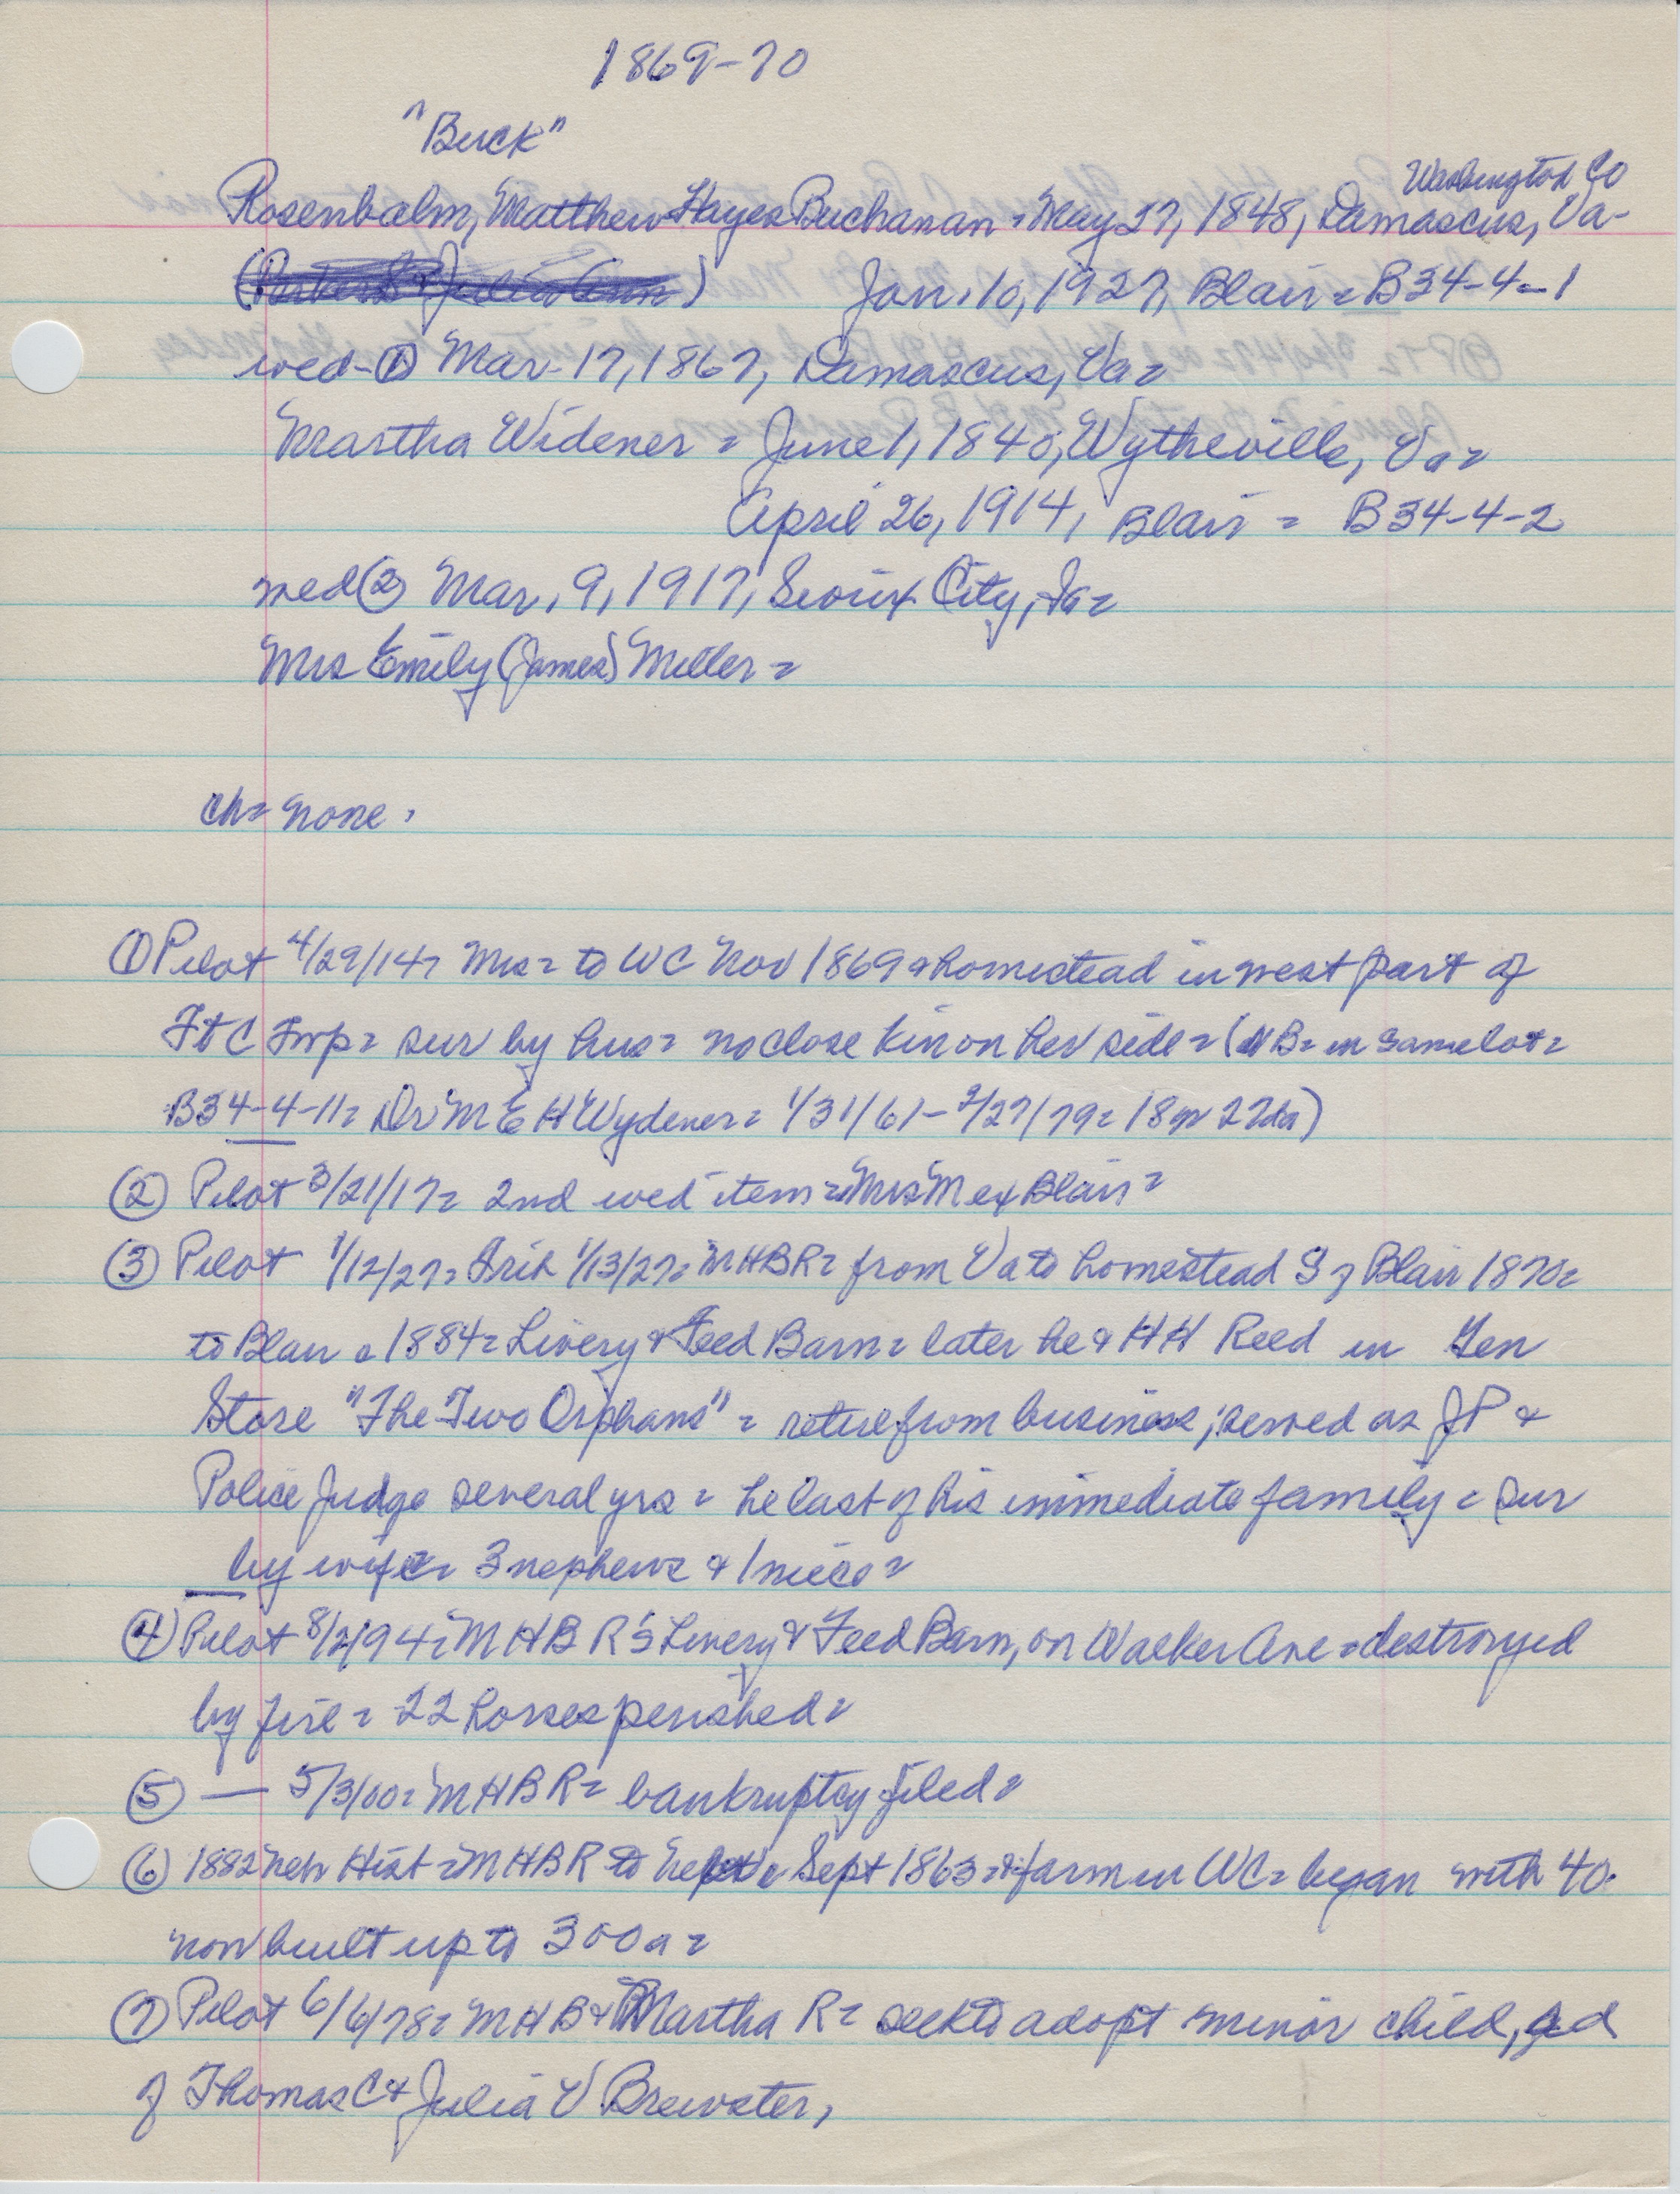 1869-70
"Buck"
Washington Co
Rosenbalm, Matthew Hayes Buchanan = May 27, 1848, Damascus, Va-
( & Julia Ann) Jan. 10, 1927, Blair = B34-4-1
wed-① Mar. 17, 1867, Damascus, Va=
Martha Widener = June 1, 1840, Wytheville, Va=
April 26, 1914, Blair = B34-4-2
wed② Mar. 9, 1917, Sioux City, Ia=
Mrs Emily (James) Miller =
ch= none.
① Pilot 4/29/14= Mrs= to WC Nov 1869 & homestead in west part of
Ft C Twp= sur by hus= no close kin on her side = (NB= in same lot=
B34-4-11= Dr M E H Wydener= 1/31/61-2/27/79= 18yr 27da)
② Pilot 3/21/17= 2nd wed item= Mrs M of Blair=
③ Pilot 1/12/27= Trib 1/13/27= MHBR= from Va to homestead S of Blair 1870=
to Blair a 1884= Livery & Feed Barn= later he & HH Reed in Gen
Store "The Two Orphans" = retire from business; served as JP &
Police Judge several yrs = he last of his immediate family = sur
by wife= 3 nephews & 1 niece=
④ Pilot 8/2/94= MHBR's Livery & Feed Barn, on Walker Ave = destroyed
by fire = 22 horses perished=
⑤ — 5/3/00= MHBR= bankruptcy filed=
⑥ 1882 Neb Hist = MHBR to Sept 1863 = & farm in WC= began with 40.
now built up to 300a=
⑦ Pilot 6/6/78= MHB & Martha R= seek to adopt minor child,
of Thomas C & Julia V Brewster,